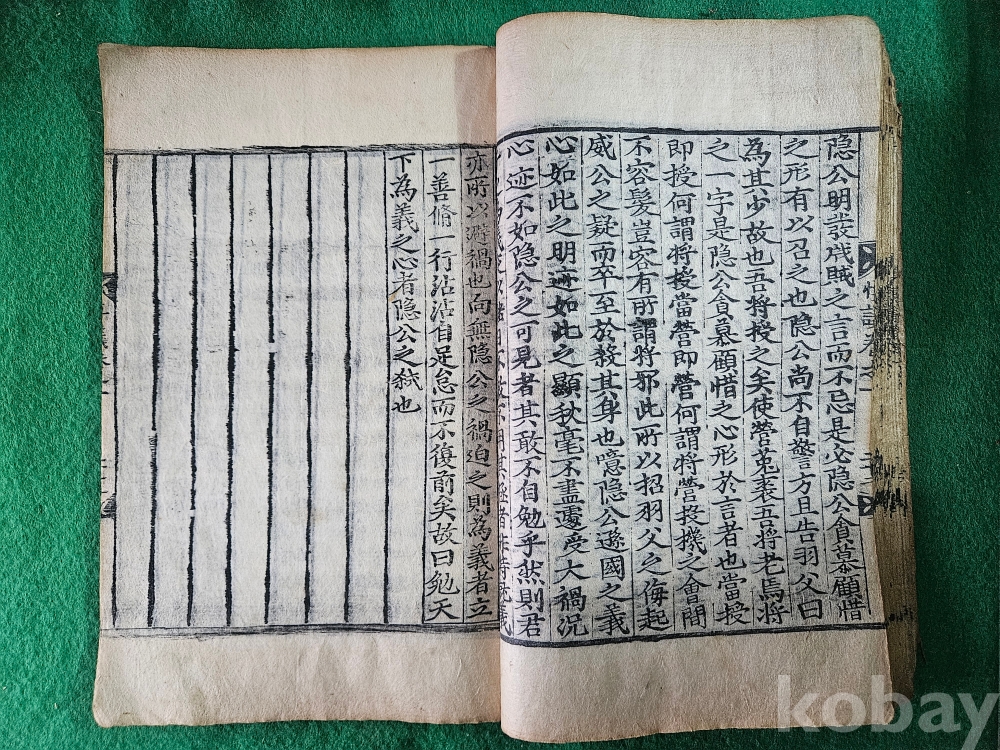 隐公明發戕賊之言而不忌是必隐公貪慕顧惜
之形有以召之也隐公尚不自警方且告羽父曰
為其少故也吾將授之矣使營菟裘吾將老焉將
之一字是隐公貪慕顧惜之心形於言者也當授
即授何謂將授當營即營何謂將營投機之會間
不容髮豈容有所謂將邪此所以招羽父之侮起
威公之疑而卒至於殺其身也噫隐公遜國之義
心如此之明迹如此之顯秋毫不盡遽受大禍况
心迹不如隐公之可見者其敢不自勉乎然則君
亦所以避禍也向無隐公之禍迫之則為義者立
一善脩一行沾沾自足怠而不復前矣故曰勉天
下為義之心者隐公之弑也
kobay